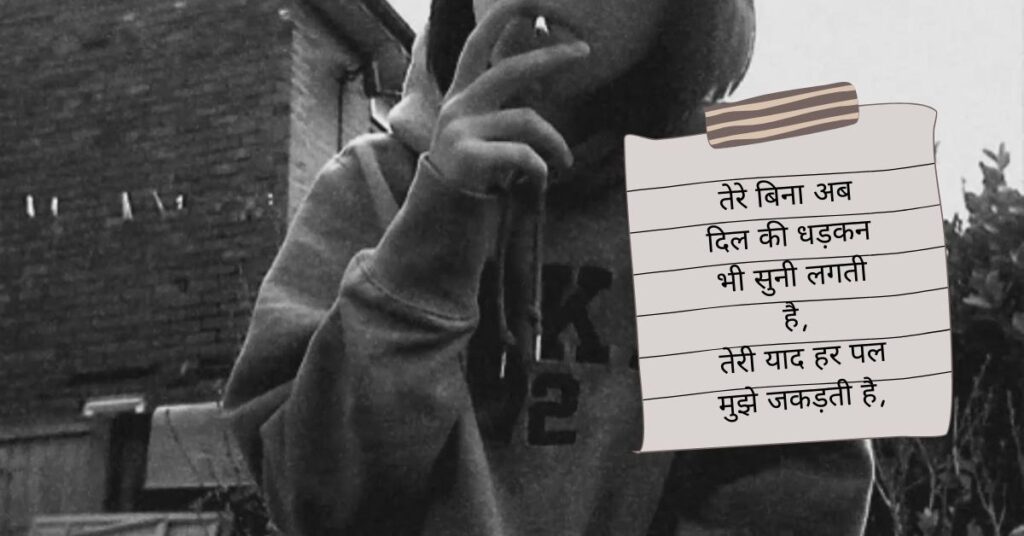 तेरे बिना अब
दिल की धड़कन
भी सुनी लगती
है,
तेरी याद हर पल
मुझे जकड़ती है,
K
2